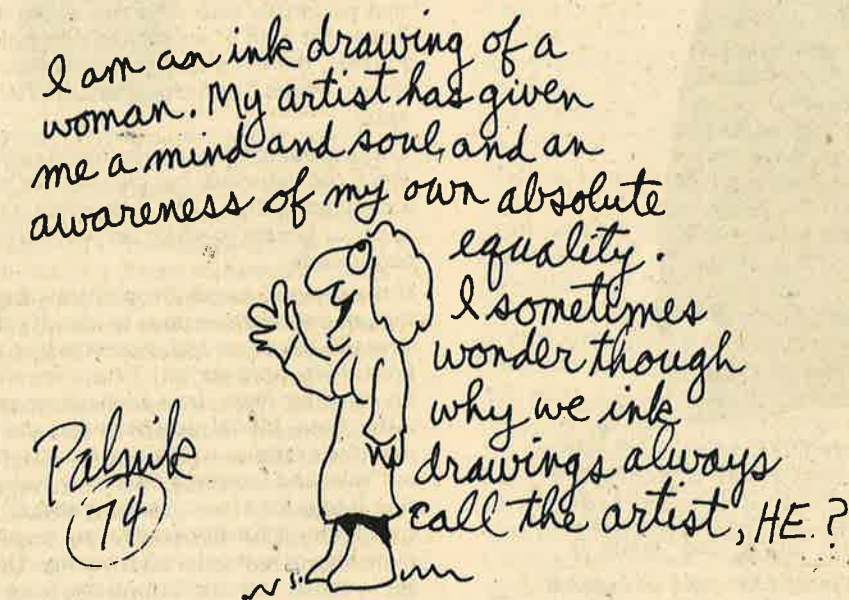 I am an ink drawing of a
woman. My artist has given
me a mind and soul, and an
awareness of my own absolute
equality.
I sometimes
wonder though
why we ink
drawings always
call the artist, HE.?
74